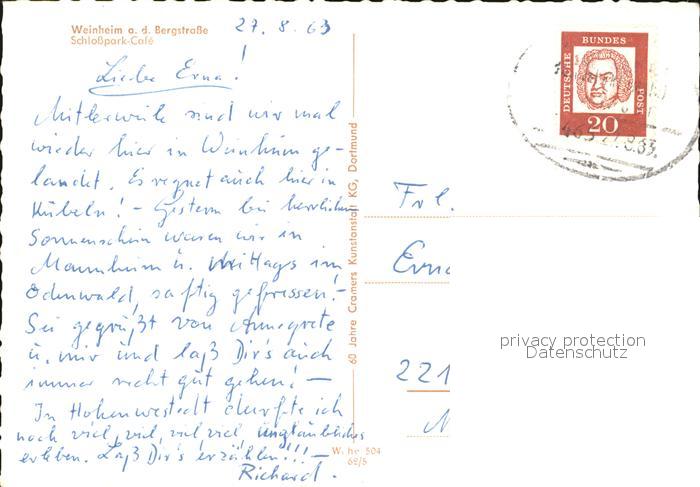 Weinheim a. d. Bergstraße
Schloßpark-Café
27. 8. 63
Liebe Erna!
Mittlerweile sind wir mal
wieder hier in Weinheim ge-
landet. Es regnet auch hier in
Kübeln! - Gestern bei herrlichem
Sonnenschein waren wir in
Mannheim u. Mittags im
Odenwald, saftig gefressen! -
Sei gegrüßt von Annegrete
u. mir und laß Dir's auch
immer recht gut gehen! -
In Hohenwestedt durfte ich
noch viel, viel, viel viel unglaubliches
erleben. Laß Dir's erzählen!!! -
Richard.
60 Jahre Cramers Kunstanstalt KG, Dortmund
W. he 504
62/5
DEUTSCHE
BUNDES
POST
20
27.8.63.
Frl.
Erna
221
privacy protection
Datenschutz